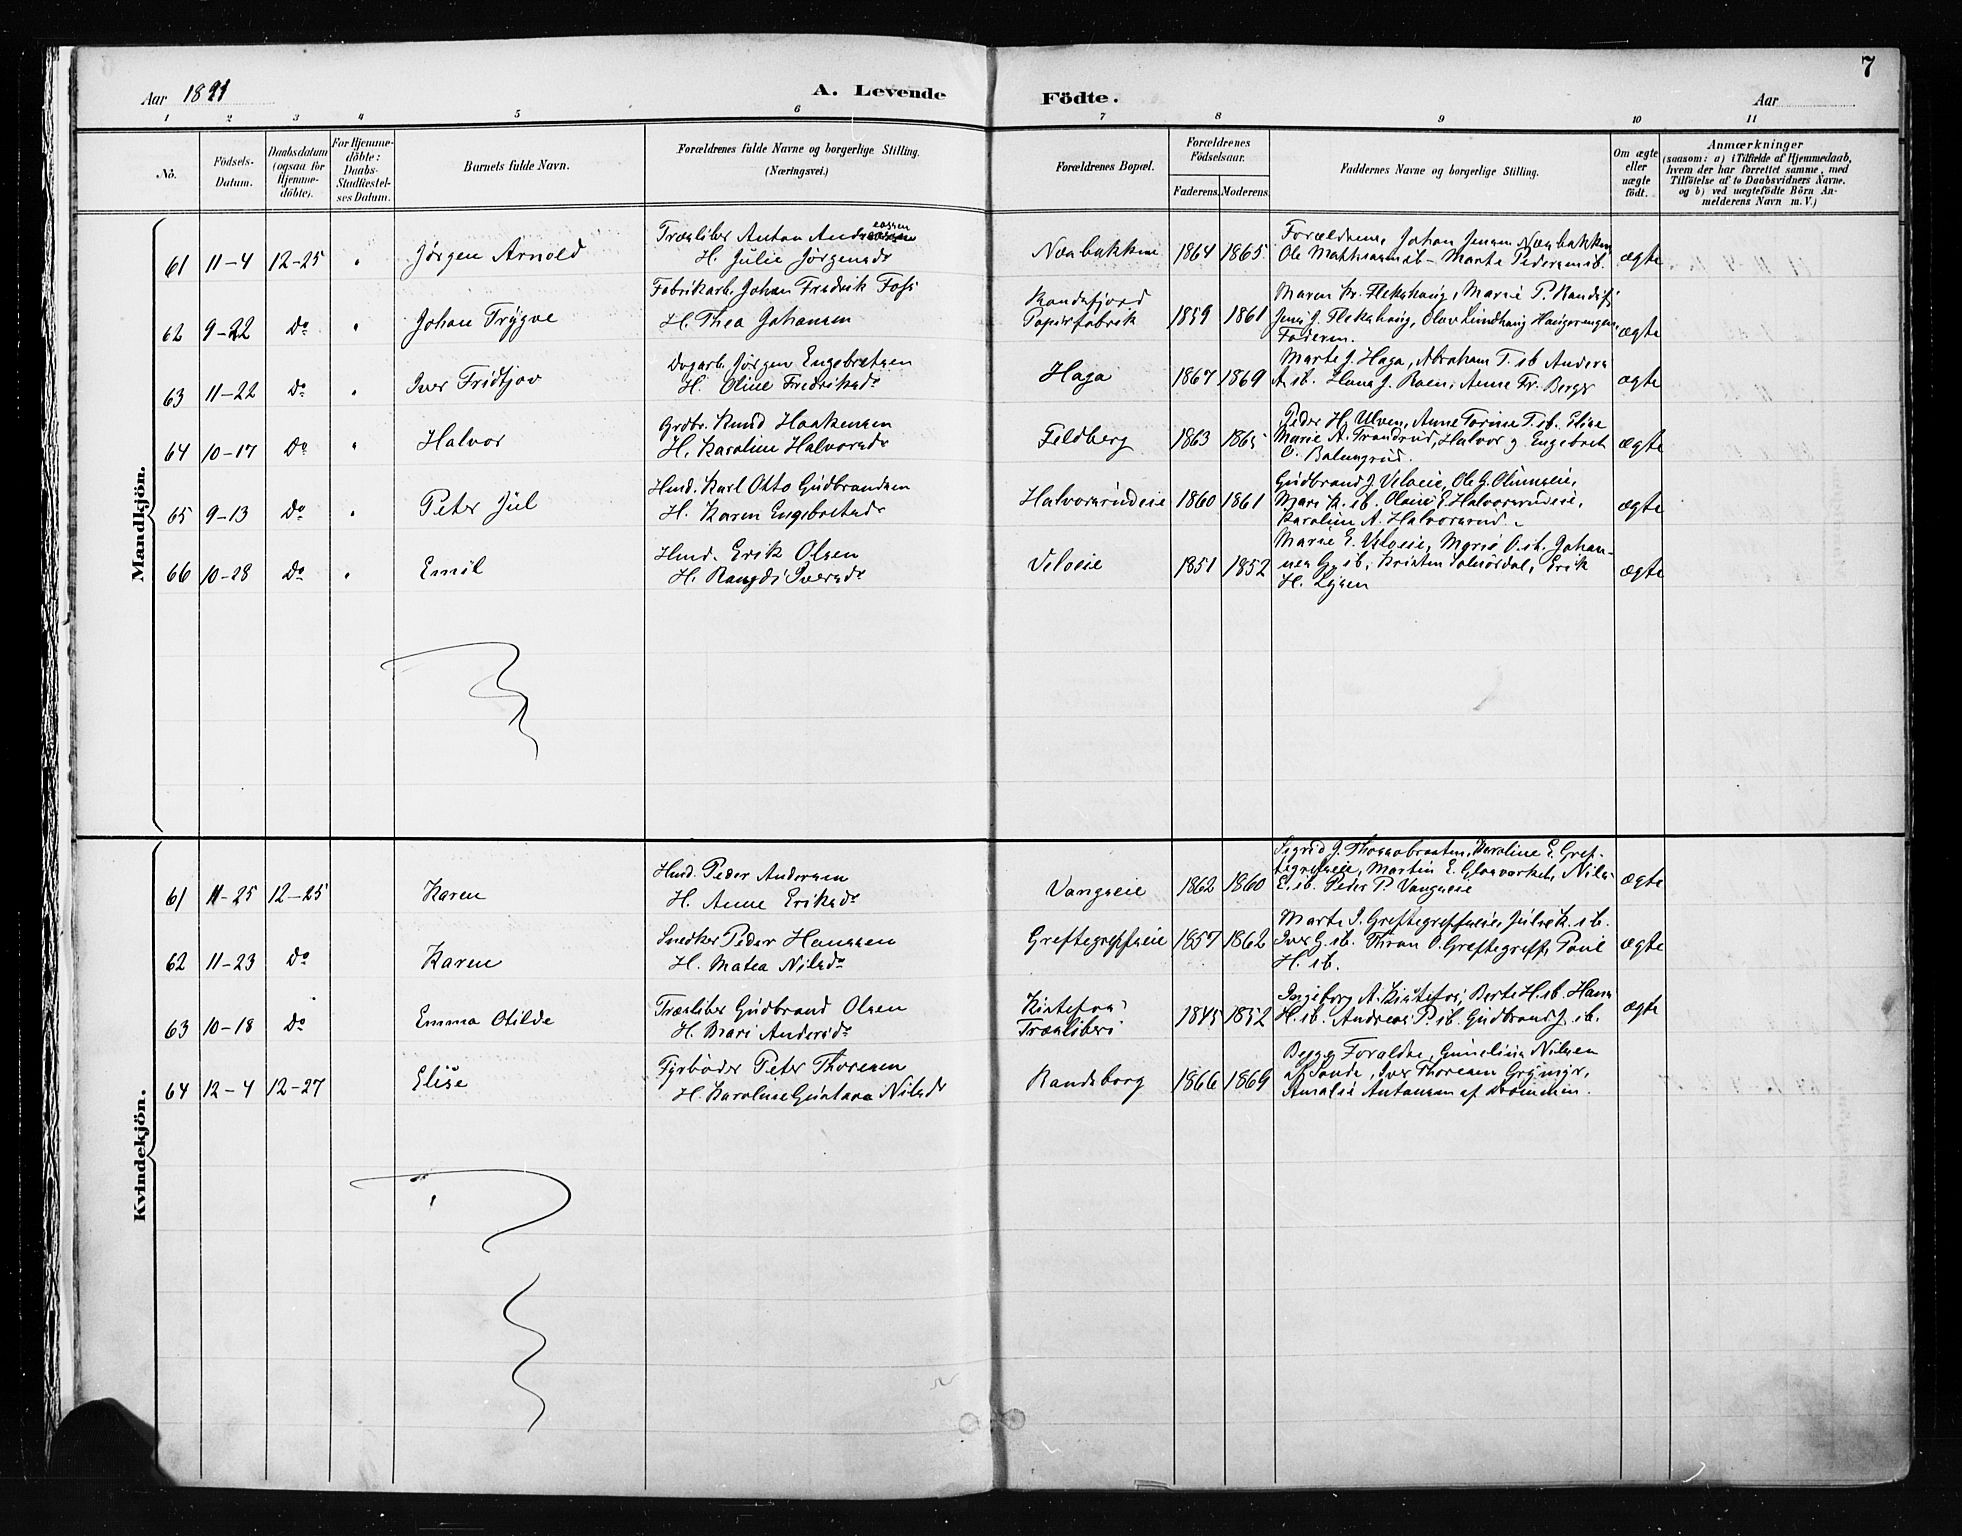 7
Aar 1891
A. Levende
Födte.
Aar
1 2 3 4 5 6 7 8 9 10 11
No.
Födsels-
Datum.
Daabsdatum
(ogsaa for
Hjemme-
döbte).
For Hjemme-
döbte:
Daabs-
Stadfæstel-
ses Datum.
Barnets fulde Navn.
Forældrenes fulde Navne og borgerlige Stilling.
(Næringsvei.)
Forældrenes Bopæl.
Forældrenes
Födselsaar.
Faderens. Moderens.
Faddernes Navne og borgerlige Stilling.
Om ægte
eller
uægte
födt.
Anmærkninger
(saasom: a) i Tilfælde af Hjemmedaab,
hvem der har forrettet samme, med
Tilföielse af to Daabsvidners Navne,
og b) ved uægtefödte Börn An-
melderens Navn m. V.)
Mandkjön.
61 11-4 12-25 Jørgen Arnold
Træsliber Anton Andreassen
H. Julie Jørgensdr
Næsbakken 1864 1865
Forældrene, Johan Jensen Næsbakken
Ole Mathiesen ib - Marte Pedersen ib.
ægte
62 9-22 Do Johan Trygve
Fabrikarb. Johan Fredrik Foss
H. Thea Johansen
Randsfjord
Papirfabrik
1859 1861
Maren Kr. Flekshaug, Marie P. Randsfj
Jens J. Flekshaug, Olav Lundhaug
Faderen.
ægte
63 11-22 Do Iver Fridtjov
Dagarb. Jørgen Engebretsen
H. Oline Fredriksdr
Haga 1867 1869
Marte J. Haga, Abraham T. ib Anders
A. ib. Hans J. Roen, Anne Fr. Berge
ægte
64 10-17 Do Halvor
Grdbr. Knud Haakensen
H. Karoline Halvorsdr
Feldberg 1863 1865
Peder H. Ulven, Anne Torine T. ib. Elise
Marie A. Trandrud, Halvor og Engebret
O. Balangrud.
ægte
65 9-13 Do Peter Jul
Hmd. Karl Otto Gudbrandsen
H. Karen Engebretsdr
Halvorsrudeie 1860 1861
Gudbrand J. Veloeie, Ole G.
Mari K. ib. Olaus E. Halvorsrudeie,
Karoline A. Halvorsrud.
ægte
66 10-28 Do Emil
Hmd. Erik Olsen
H. Rangdi Iversdr
Veloeie 1851 1852
Marie E. Veloeie, Marie O. ib. Johan-
nes G. ib. Kristen, Erik
H.
ægte
Kvindekjön.
61 11-25 12-25 Karen
Hmd. Peder Andersen
H. Anne Eriksdr
Vangseie 1862 1860
Sigrid J. Karoline E. Gref-
tegrefseie, Martin E. Nils
E. ib. Peter P. Vangseie
ægte
62 11-23 Do Karen
Snedker Peder Hanssen
H. Matea Nilsdr
Greftegrefseie 1857 1862
Marte I. Greftegrefseie, Julie K. ib.
Iver G. ib. Thron O. Greftegreff, Povl
H. ib.
ægte
63 10-18 Do Emma Otilde
Træsliber Gudbrand Olsen
H. Mari Andersdr
Kistefos
Træsliberi
1845 1852
Ingeborg A. Kistefos, Berte H. ib. Hans
H. ib. Andreas P. ib. Gudbrand J. ib.
ægte
64 12-4 12-27 Elise
Fyrbøder Peter Thoresen
H. Karoline Gustava Nilsdr
Randsborg 1866 1869
Begge Forældre, Nilsen
af Sande, Iver Thoresen
Amalie Antonsen af Drammen.